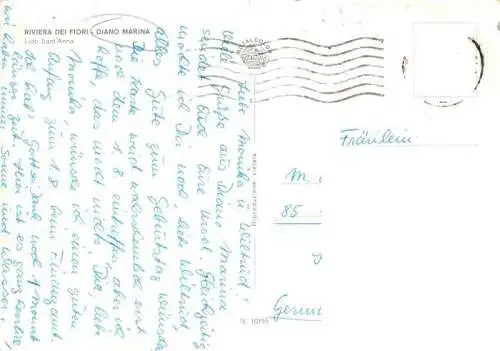 RIVIERA DEI FIORI - DIANO MARINA
Lido Sant'Anna
Liebe Monika u. Wiltrud!
Viele Grüße aus Diano Marina
sendet Euch Eure Gleichzeitig
möchte ich Dir noch, liebe Wiltrud,
alles Gute zum Geburtstag wünschen
Die Karte wird wahrscheinlich erst
nach dem 1.8 eintreffen, aber ich
hoffe, das macht nichts. Dir, liebe
Monika, wünsche ich einen guten
Anfang zum 1.8 beim Finanzamt.
Ich habe Gott sei Dank noch 1 Monat
hier ist es ganz
wir haben immer Sonne und Wasser.
Fräulein
M.
85
Germ
N. 10155